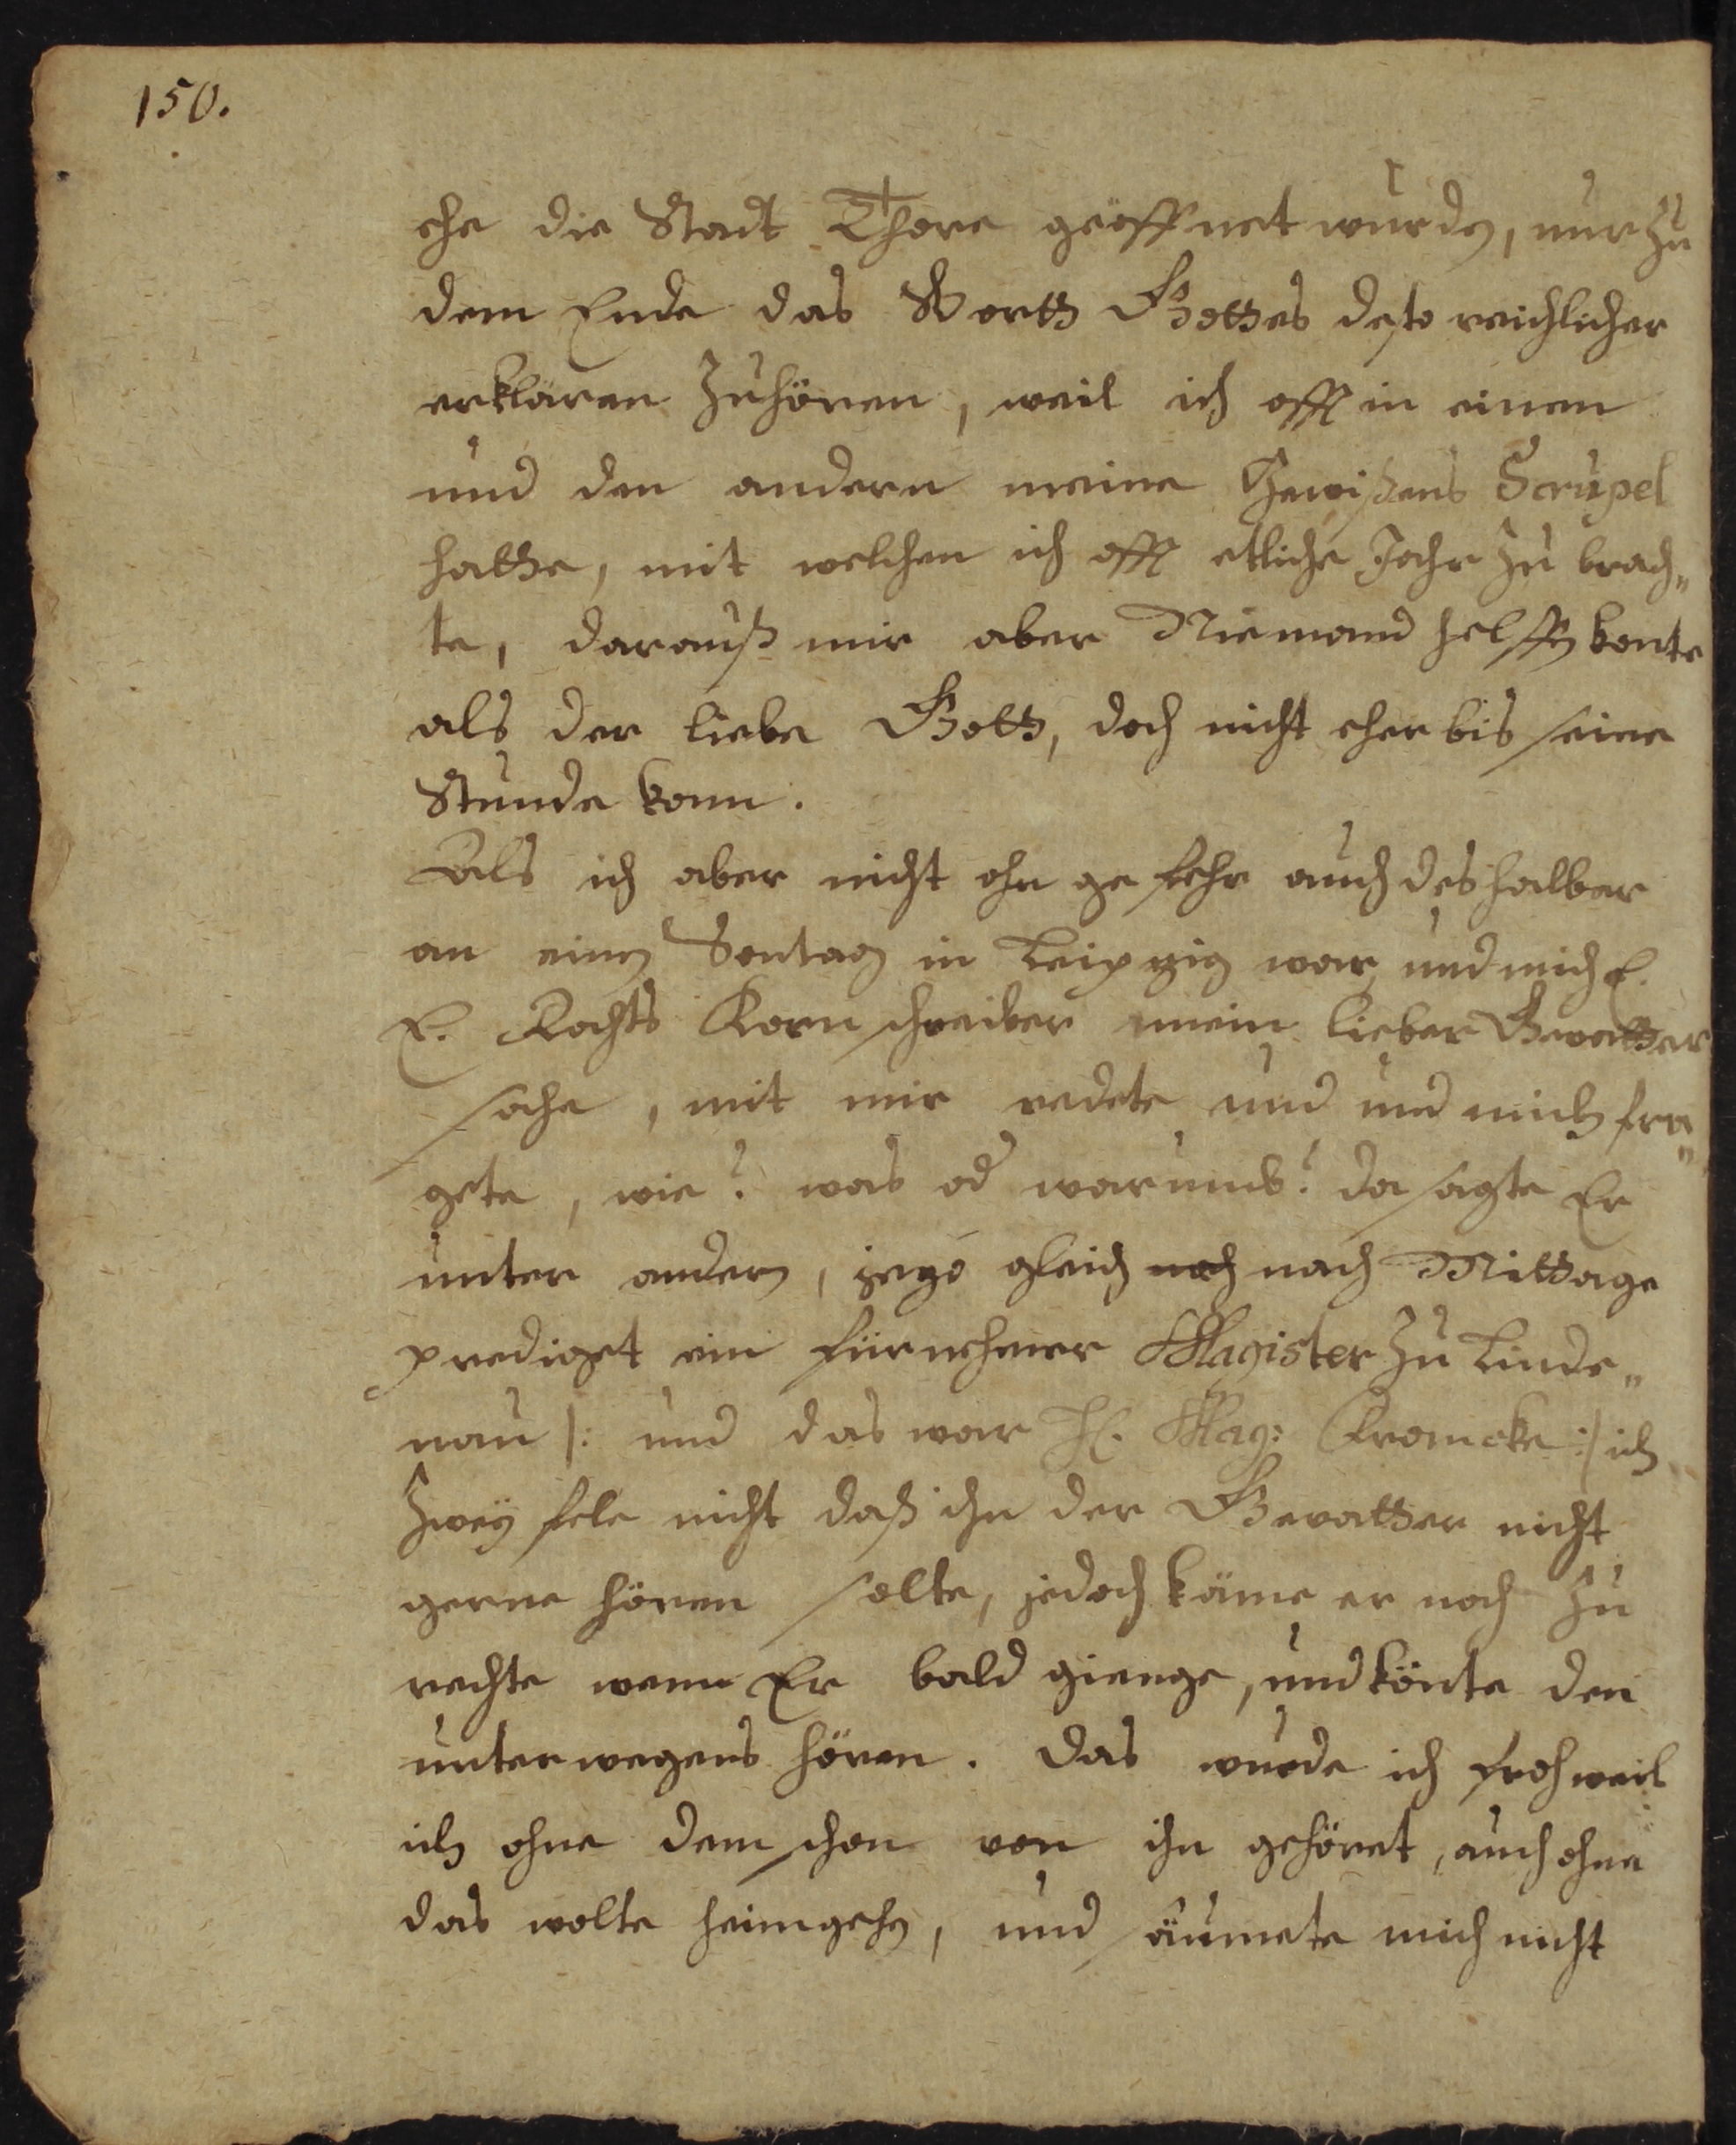 150.
ehe die Stadt Thore geöffnet wurden, nur zu
dem Ende das Wortt Gottes desto reichlicher
erklären zuhören, weil ich offt in einen
und den andern meine Gewißens Scrupel
hatte, mit welchen ich offt etliche Jahr zu brach„
te, darauß mir aber Niemand helffen konte
als der liebe Gott, doch nicht eher bis seine
Stunde kam.
Als ich aber nicht ohn gefehr auch deshalber
an einen Sontag in Leipzig war, und mich E.
E. Rahts Korn schreiber mein lieber Gevatter
sahe, mit mir redete und und mich fra„
gete, wie? was od warumb? da sagte Er
unter andern, jezo gleich noch nach Mittage
prediget ein fürnehmer Magister zu Linde„
nau /: und das war H. Mag: Kromeke :/ ich
zweyfele nicht daß ihn der Gevatter nicht
gerne hören solte, jedoch käme er noch zu
rechte wenn Er bald gienge, und könte den
unterwegens hören. Das wurde ich froh weil
ich ohne dem schon von ihn gehöret, auch ohne
das wolte heimgehen, und säumete mich nicht